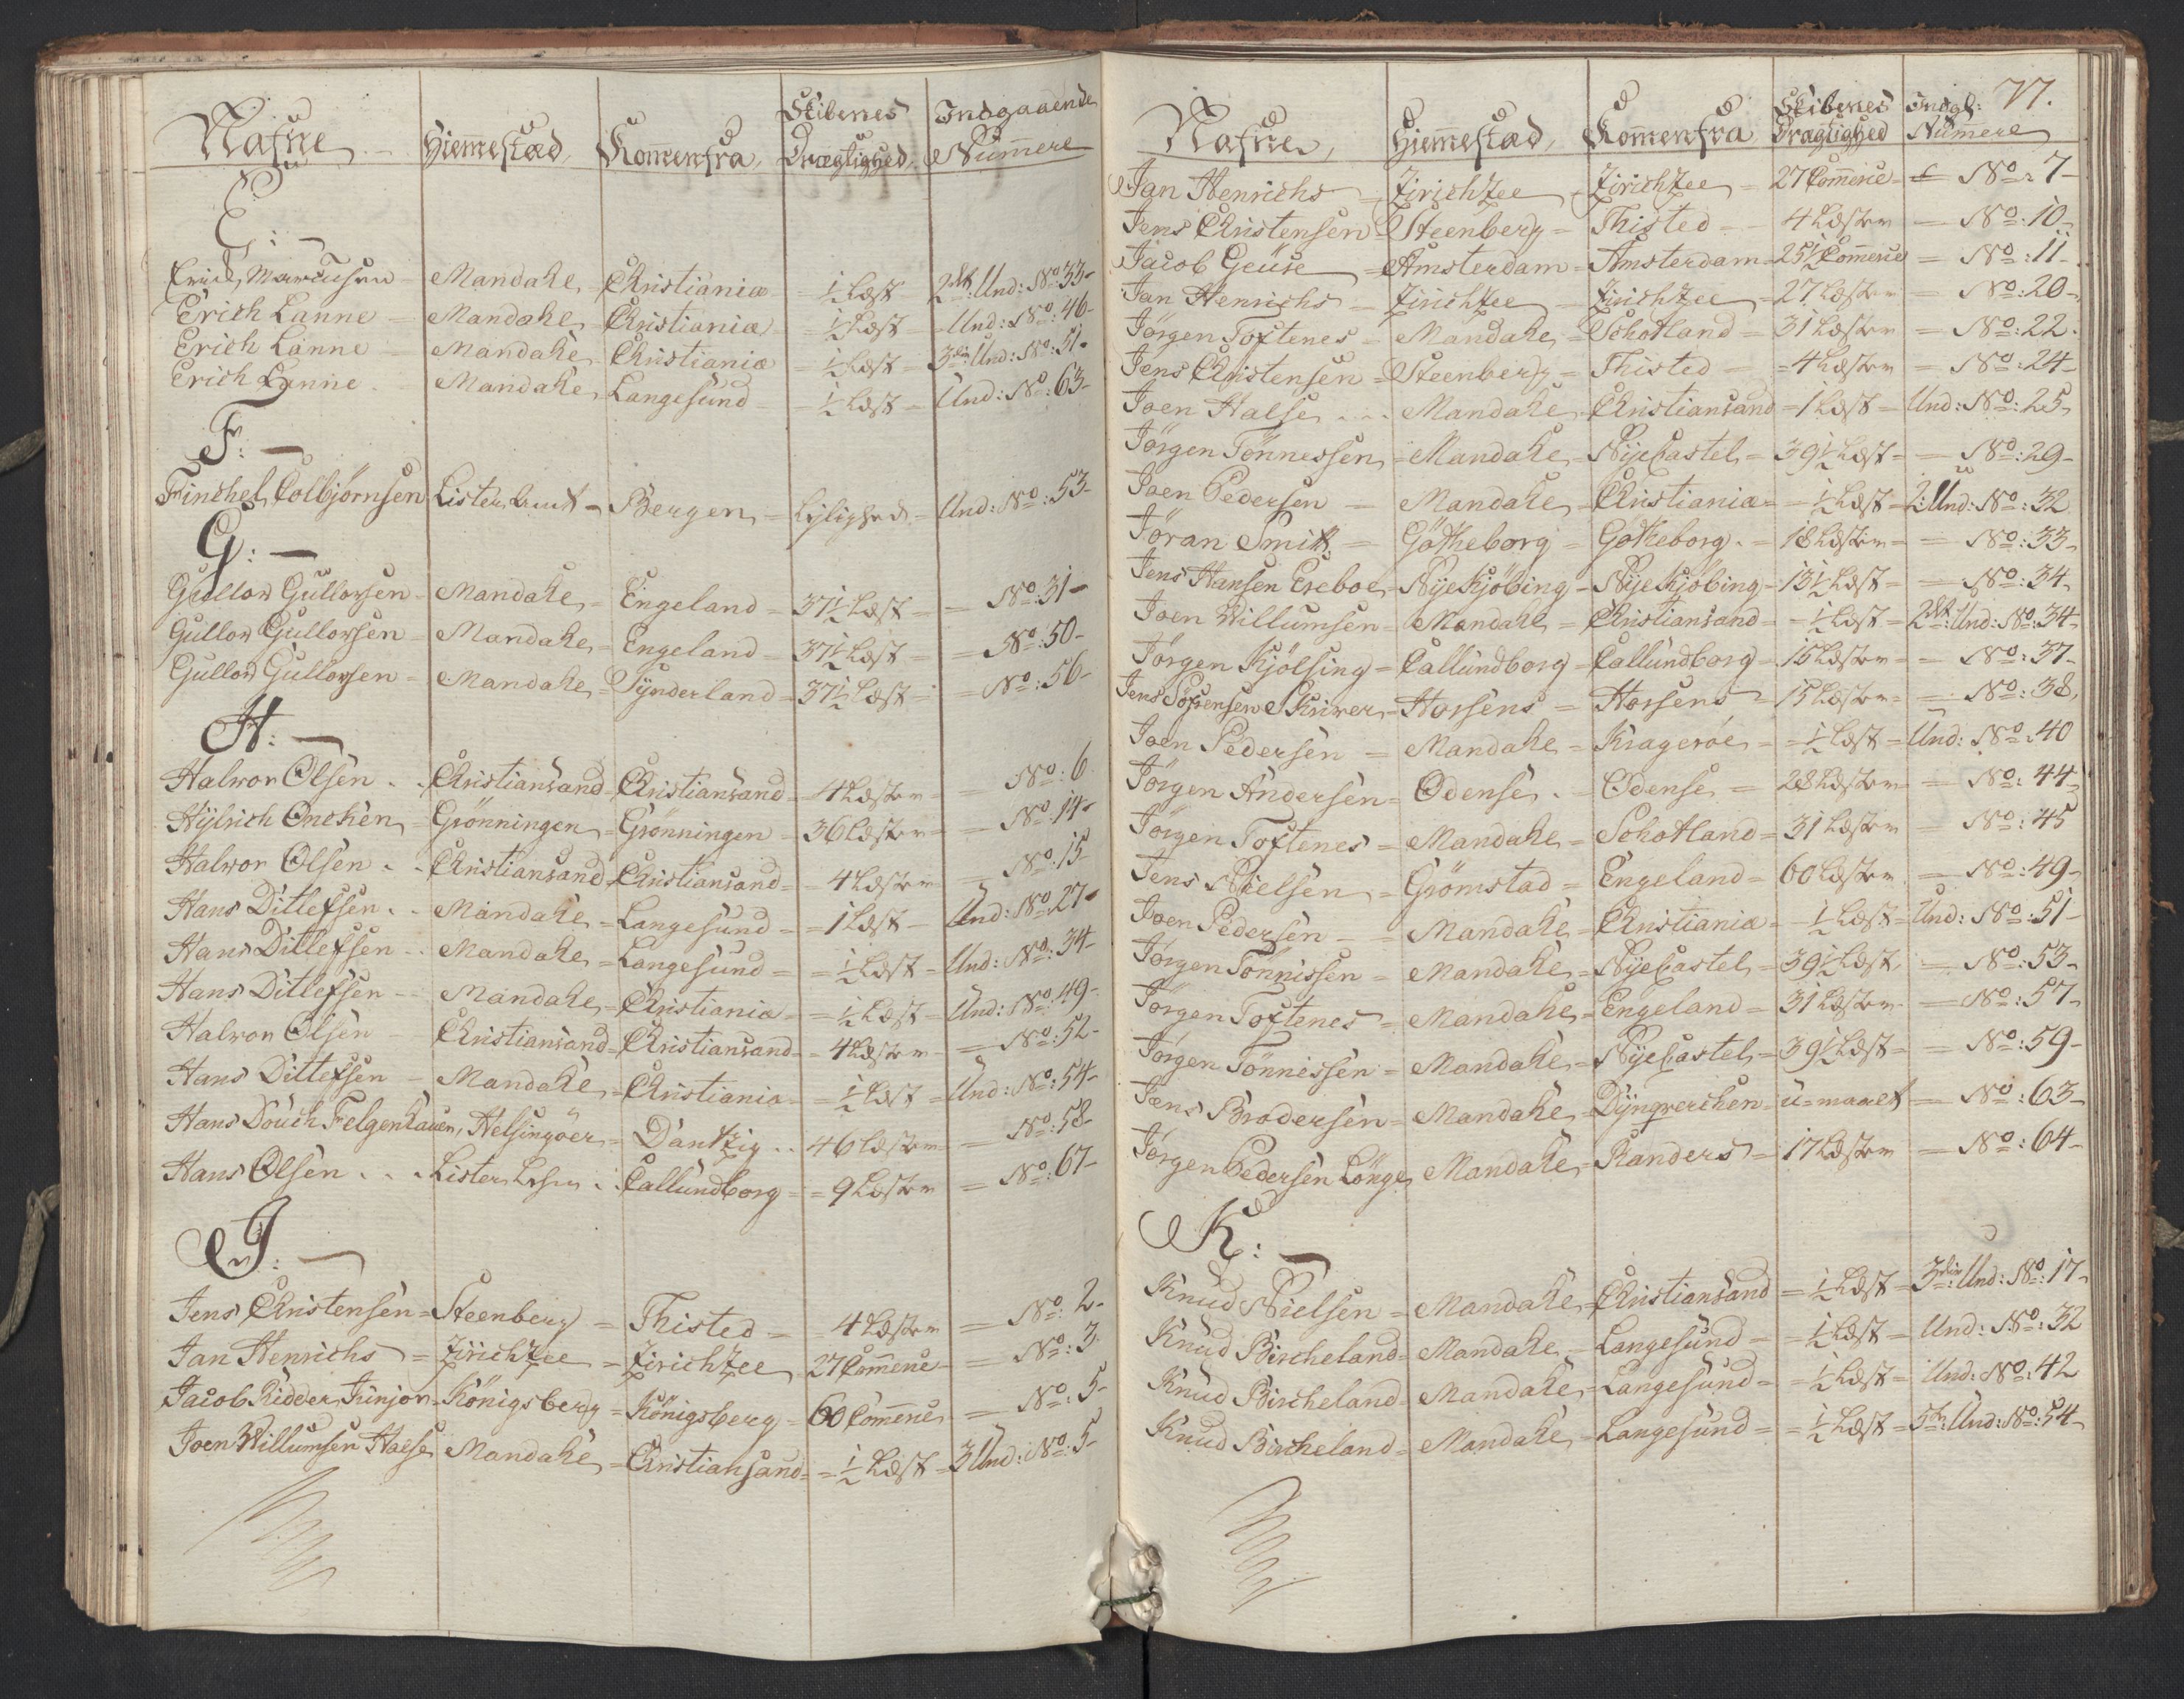 Nafne Hiemestæd, Komenfra, Skibenes Drægtighed, Indgaaende Numere
E: —
Erich Marcusen - Mandahl - Christiania - ½ Læst 2de Und: No: 33-
Erich Lanne - Mandahl - Christiania - ½ Læst - Und: No: 46-
Erich Lanne - Mandahl Christiania - ½ Læst - 3die Und: No: 51-
Erich Lanne - Mandahl Langesund - ½ Læst - Und: No: 63-
F: —
Finchel Colbjørnsen Lister - Bergen - Und: No: 53-
G: —
Gullow Gullowsen - Mandahl - Engeland - 37½ Læst - = No: 31-
Gullow Gullowsen - Mandahl - Engeland - 37½ Læst - = No: 50-
Gullow Gullowsen - Mandahl - Synderland - 37½ Læst - = No: 56-
H: —
Halwor Olsen . . Christiansand - Christiansand - 4 Læster - = No: 6
Hÿlrich Onchen - Grönningen - Grönningen - 36 Læster = = No: 14-
Halwor Olsen . . Christiansand Christiansand - 4 Læster - = No: 15-
Hans Ditlefsen . . Mandahl - Langesund - 1 Læst - Und: No: 27-
Hans Ditlefsen . . Mandahl - Langesund = ½ Læst - Und: No: 34-
Hans Ditlefsen - Mandahl - Christiania - ½ Læst - Und: No: 49-
Halwor Olsen Christiansand - Christiansand - 4 Læster - = No: 52-
Hans Ditlefsen - Mandahl - Christiania - ½ Læst - Und: No: 54-
Hans Douch Felgenhauer, Helsingöer - Dantzig . . 46 Læster - = No: 58-
Hans Olsen . . . Lister . . Callundborg - 9 Læster = No: 67-
J: —
Jens Christensen = Steenberg = Thisted = 4 Læster = No: 2-
Jan Henrichs = Zirichzee = Zirichzee 27 Commerce - = No: 3-
Jacob Ridder Junjor - Königsberg - Königsberg - 60 Commerce = No: 5-
Joen Willumsen Halse Mandahl - Christiansand - = ½ Læst - 3 Und: No: 5-
77.
Nafne, Hiemestæd, Komenfra Skibenes Dragtighed Indg: Numere
Jan Henrichs - Zirichzee - Zirichzee - 27 Commerce - = No: 7-
Jens Christensen - Steenberg - Thisted - 4 Læster = No: 10-
Jacob Geuse = Amsterdam - Amsterdam - 25½ Commerce = No: 11-
Jan Henrichs = Zirichzee - Zirichzee - 27 Læster - = No: 20-
Jørgen Toftenes = Mandahl - Schotland - 31 Læster = No: 22.
Jens Christensen - Steenberg - Thisted - = 4 Læster = No: 24-
Joen Halse . . . Mandahl - Christiansand - 1 Læst - Und: No: 25-
Jörgen Tönnessen - Mandahl - Nÿecastel - 39½ Læst - = No: 29-
Joen Pedersen = Mandahl - Christiania - - ½ Læst - 2: Und: No: 32
Jöran Smitt = Götheborg = Gotheborg . - 18 Læster - = No: 33-
Jens Hansen Ereboe - Nÿekjöbing - Nÿekjöbing - 13½ Læst - = No: 34-
Joen Willumsen - Mandahl = Christiansand - - ½ Læst - 2de Und: No: 34-
Jørgen Kjölsing = Callundborg - Callundborg - 15 Læster - = No: 37-
Jens Sörensen Skriwer - Horsens = Horsens = 15 Læster - = No: 38-
Joen Pedersen = Mandahl - Kragerøe - = ½ Læst = Und: No: 40
Jörgen Andersen = Odense . - Odense = 28 Læster = No: 44-
Jörgen Toftenes = Mandahl - Schotland - 31 Læster = No: 45
Jens Nielsen = Grömstad - Engeland - 60 Læster = No: 49-
Joen Pedersen - - Mandahl - Christiania - - ½ Læst - Und: No: 51-
Jörgen Tönnissen = Mandahl - Nÿecastel - 39½ Læst, = No: 53-
Jörgen Toftenes = Mandahl - Engeland - 31 Læster - = No: 57-
Jörgen Tönnissen = Mandahl - Nÿecastel - 39½ Læst - = No: 59-
Jens Brodersen - Mandahl - Dÿnqverchen - u-maalt = No: 63-
Jörgen Pedersen Lönge Mandahl - Randers - 17 Læster = No: 64-
K: —
Knud Nielsen = Mandahl - Christiansand = ½ Læst = 3die Und: No: 17-
Knud Bircheland - Mandahl - Langesund - = ½ Læst = Und: No: 32
Knud Bircheland - Mandahl - Langesund - = ½ Læst = Und: No: 42
Knud Bircheland - Mandahl - Langesund - = ½ Læst = 5te Und: No: 54-